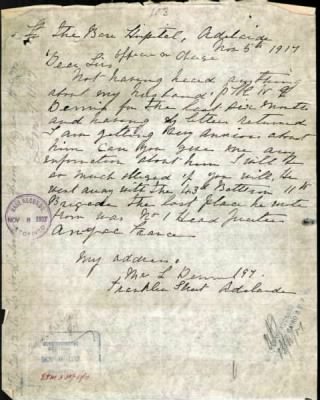 103
The Base Hospital, Adelaide
Nov 5th 1917
Officer in Charge
Dear Sir
Not having heard anything
about my husband Pte W H
Dennis for the last six months
and having letters returned
I am getting very anxious about
him Can you give me any
information about him I will be
so much obliged if you will. He
went away with the 43rd Battalion 11th
Brigade the last place he wrote
from was No 1 Head Quarters
France
My address
Mrs L Dennis 197
Franklin Street Adelaide
BASE RECORDS
NOV 8 1917